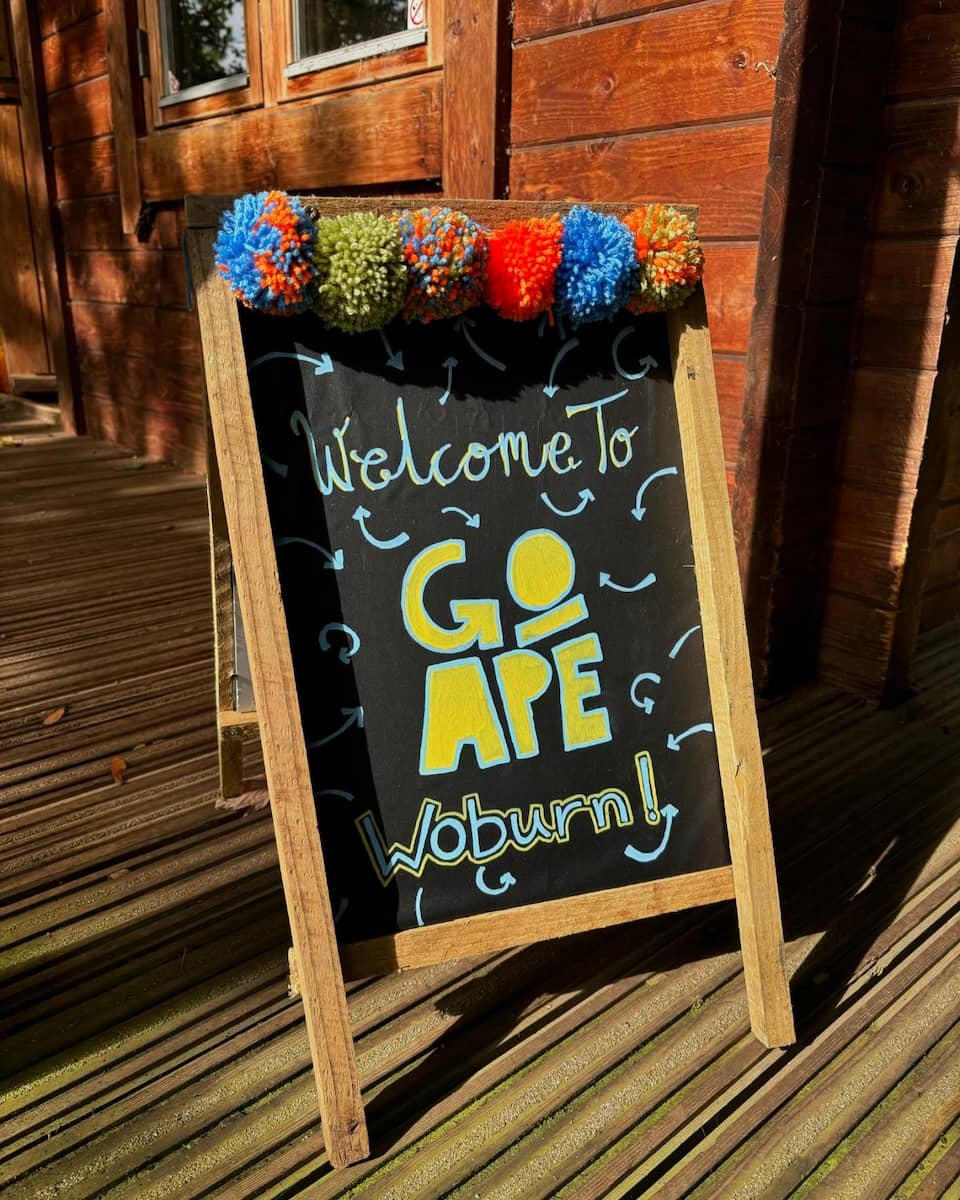 Welcome To
GO
APE
Woburn!